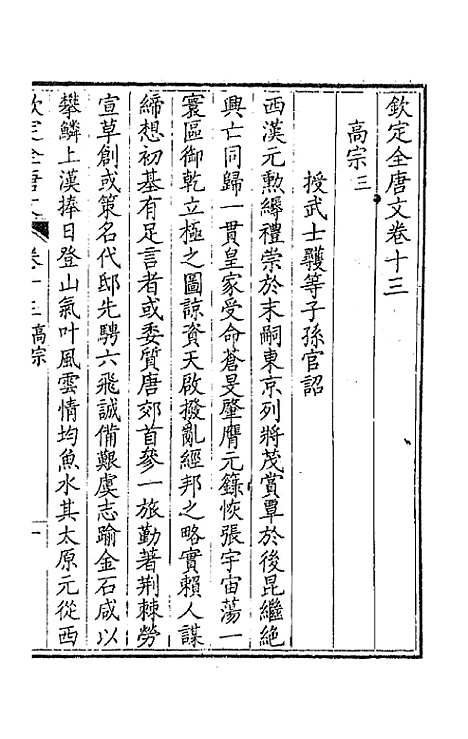 欽定全唐文卷十三
高宗三
授武士彠等子孫官詔
西漢元勲縟禮崇於末嗣東京列將茂賞覃於後昆繼絶
興亡同歸一貫皇家受命蒼旻肇膺元籙恢張宇宙蕩一
寰區御乾立極之圖諒資天啟撥亂經邦之略實賴人謀
緬想初基有足言者或委質唐郊首參一旅勤著荆棘勞
宣草創或策名代邸先騁六飛誠備艱虞志踰金石咸以
攀鱗上漢捧日登山氣叶風雲情均魚水其太原元從西
欽定全唐文 卷十三 高宗 一